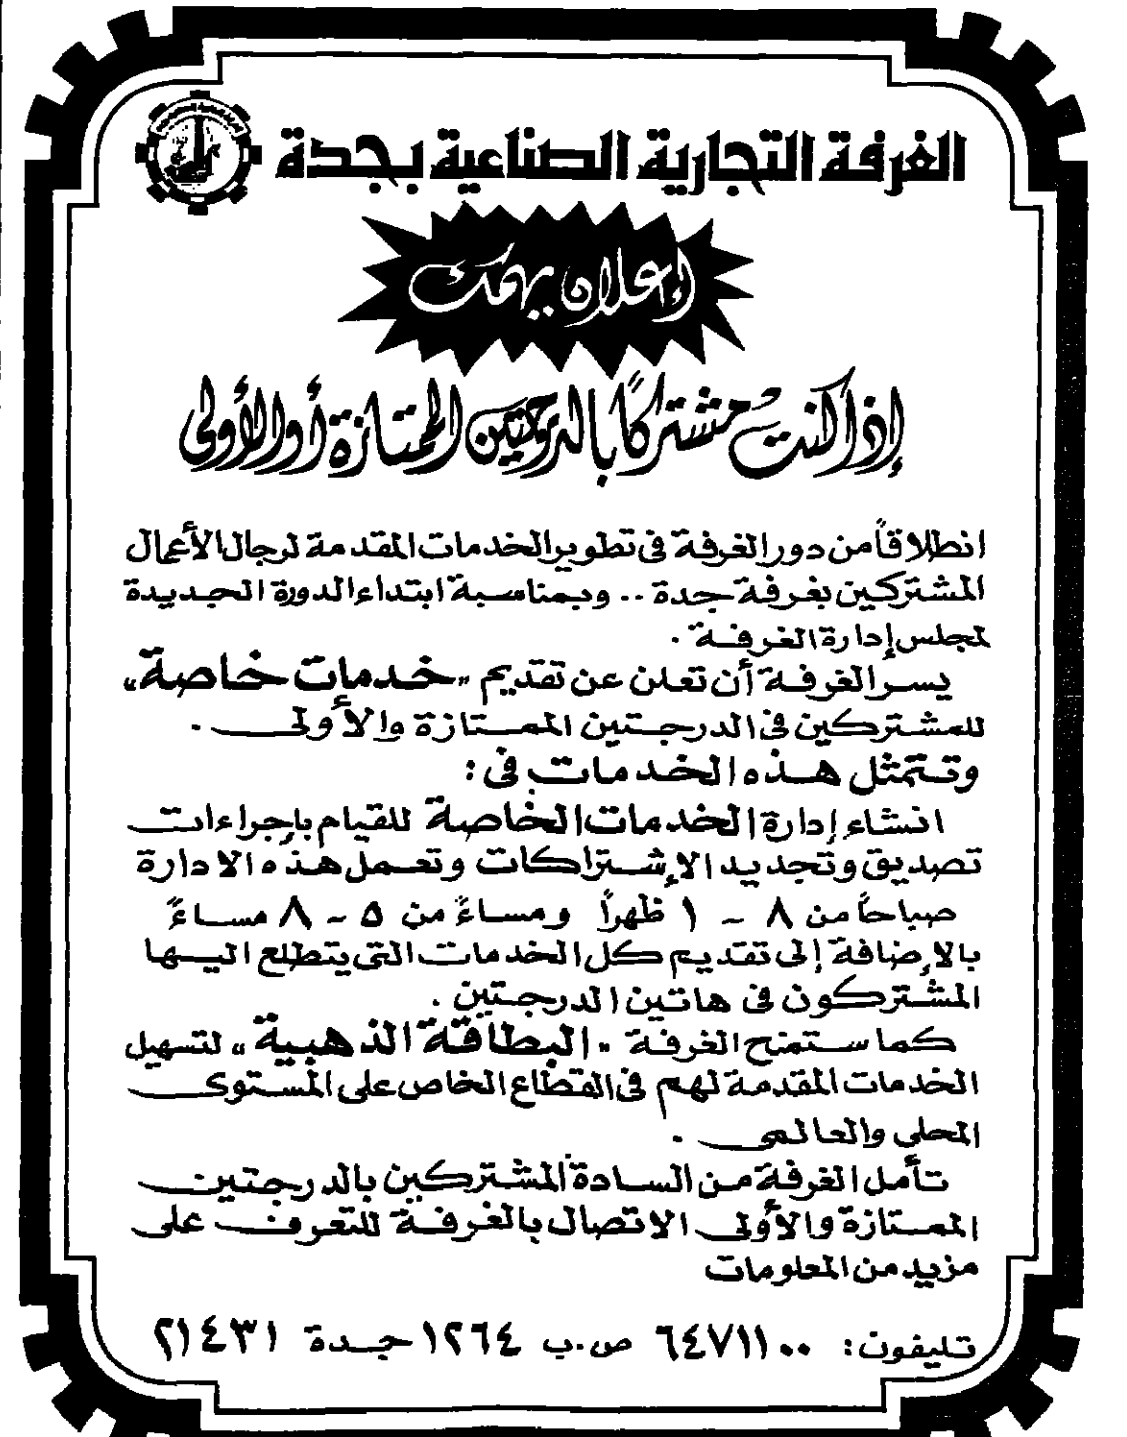 الغرفة التجارية الصناعية بجدة
إعلان يهمك
إذا كنت مشتركاً بالدرجتين الممتازة أو الأولى
انطلاقاً من دور الغرفة في تطوير الخدمات المقدمة لرجال الأعمال
المشتركين بغرفة جدة .. وبمناسبة ابتداء الدورة الجديدة
لمجلس إدارة الغرفة .
يسر الغرفة أن تعلن عن تقديم «خدمات خاصة»
للمشتركين في الدرجتين الممتازة والأولى .
وتتمثل هذه الخدمات في :
انشاء إدارة الخدمات الخاصة للقيام بإجراءات
تصديق وتجديد الإشتراكات وتعمل هذه الادارة
صباحاً من ٨ - ١ ظهراً ومساءً من ٥ - ٨ مساءً
بالإضافة إلى تقديم كل الخدمات التي يتطلع اليها
المشتركون في هاتين الدرجتين .
كما ستمنح الغرفة «البطاقة الذهبية» لتسهيل
الخدمات المقدمة لهم في القطاع الخاص على المستوى
المحلى والعالمى .
تأمل الغرفة من السادة المشتركين بالدرجتين
الممتازة والأولى الاتصال بالغرفة للتعرف على
مزيد من المعلومات
تليفون: ٦٤٧١١٠٠ ص.ب ١٢٦٤ جدة ٢١٤٣١